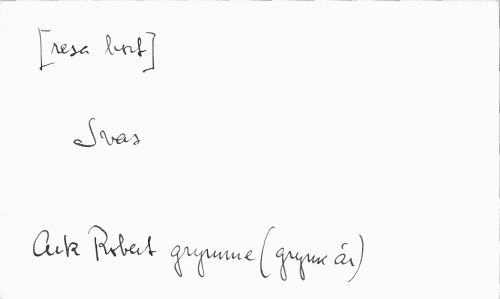 [resa bort]
Svas
Ark Robert grymme (grym är)